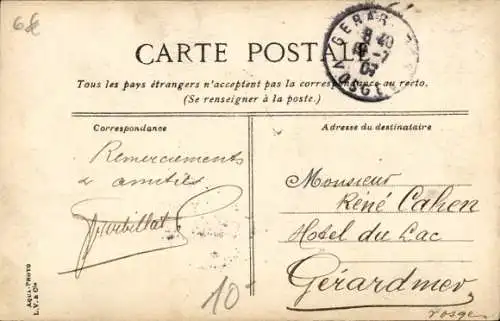 6€
CARTE POSTALE
Tous les pays étrangers n'acceptent pas la correspondance au recto.
(Se renseigner à la poste.)
Correspondance
Remerciements
& amitiés
10-
AQUA-PHOTO
L. V. & Cie
Adresse du destinataire
Monsieur
Réné Cahen
Hotel du Lac
Gérardmer
Vosges